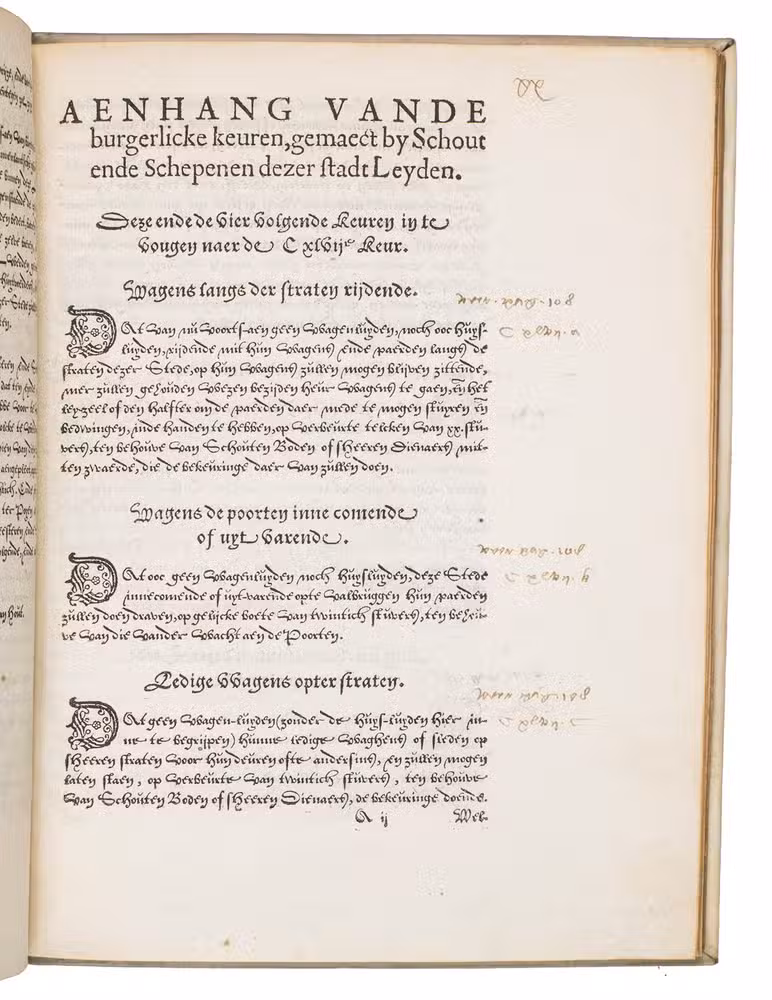 AENHANG VANDE
burgerlicke keuren, gemaect by Schout
ende Schepenen dezer stadt Leyden.
Deze ende de vier volgende Keuren in te
vougen naer de C xlvije Keur.
Wagens langs der straten rijdende.
DAt van nu voorts-aen geen wagenluyden, noch ooc huys-
luyden, rijdende mit hun wagens ende paerden langs de
straten dezer Stede, op hun wagens zullen mogen blijven zittende,
mer zullen gehouden wezen bezijden heur wagens te gaen, en het
leyzeel of den halfter om de paerden daer mede te mogen stuyren en
bedwingen, inde handen te hebben, op verbeurte telcken van xx. stu-
vers, ten behouve van Schouten Boden of sHeeren Dienaers mit-
ten zwaerde, die de bekeuringe daer van zullen doen.
Wagens de poorten inne comende
of uyt varende.
DAt ooc geen wagenluyden noch huysluyden, deze Stede
innecomende of uyt-varende opte valbruggen hun paerden
zullen doen draven, op gelicke boete van twintich stuvers, ten behou-
ve van die vander wacht aen de Poorten.
Ledige Wagens opter straten.
DAt geen wagen-luyden (zonder de huys-luyden hier in-
ne te begrijpen) hunne ledige waghens of sleden op
sHeeren straten voor hun deuren ofte andersins, en zullen mogen
laten staen, op verbeurte van twintich stuvers, ten behouve
van Schouten Boden of sHeeren Dienaers, de bekeuringe doende.
A ij Wel-
pag. 108
C xlvij. a
pag. 108
C xlvij. b
pag. 108
C xlvij. c